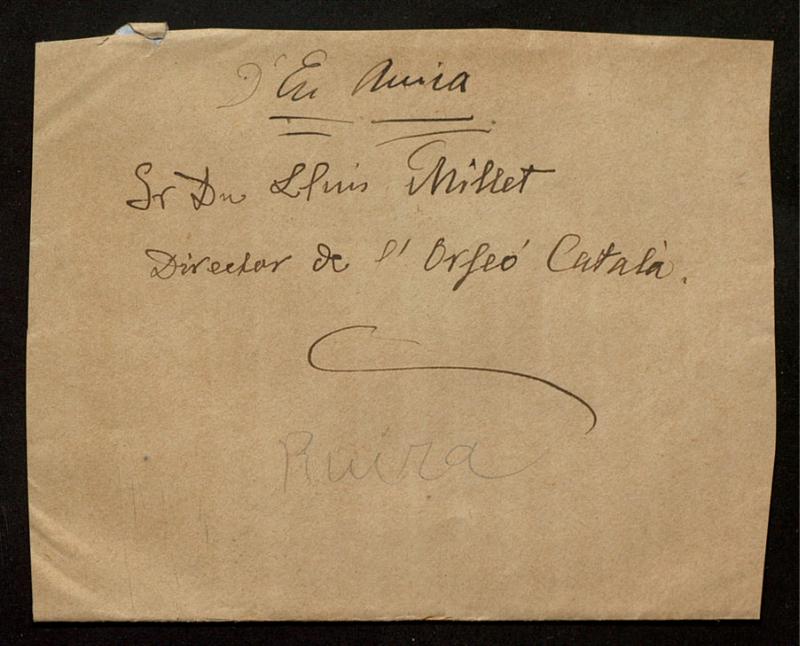 D'En Ruira
Sr Dn Lluis Millet
Director de l'Orfeó Català.
Ruira